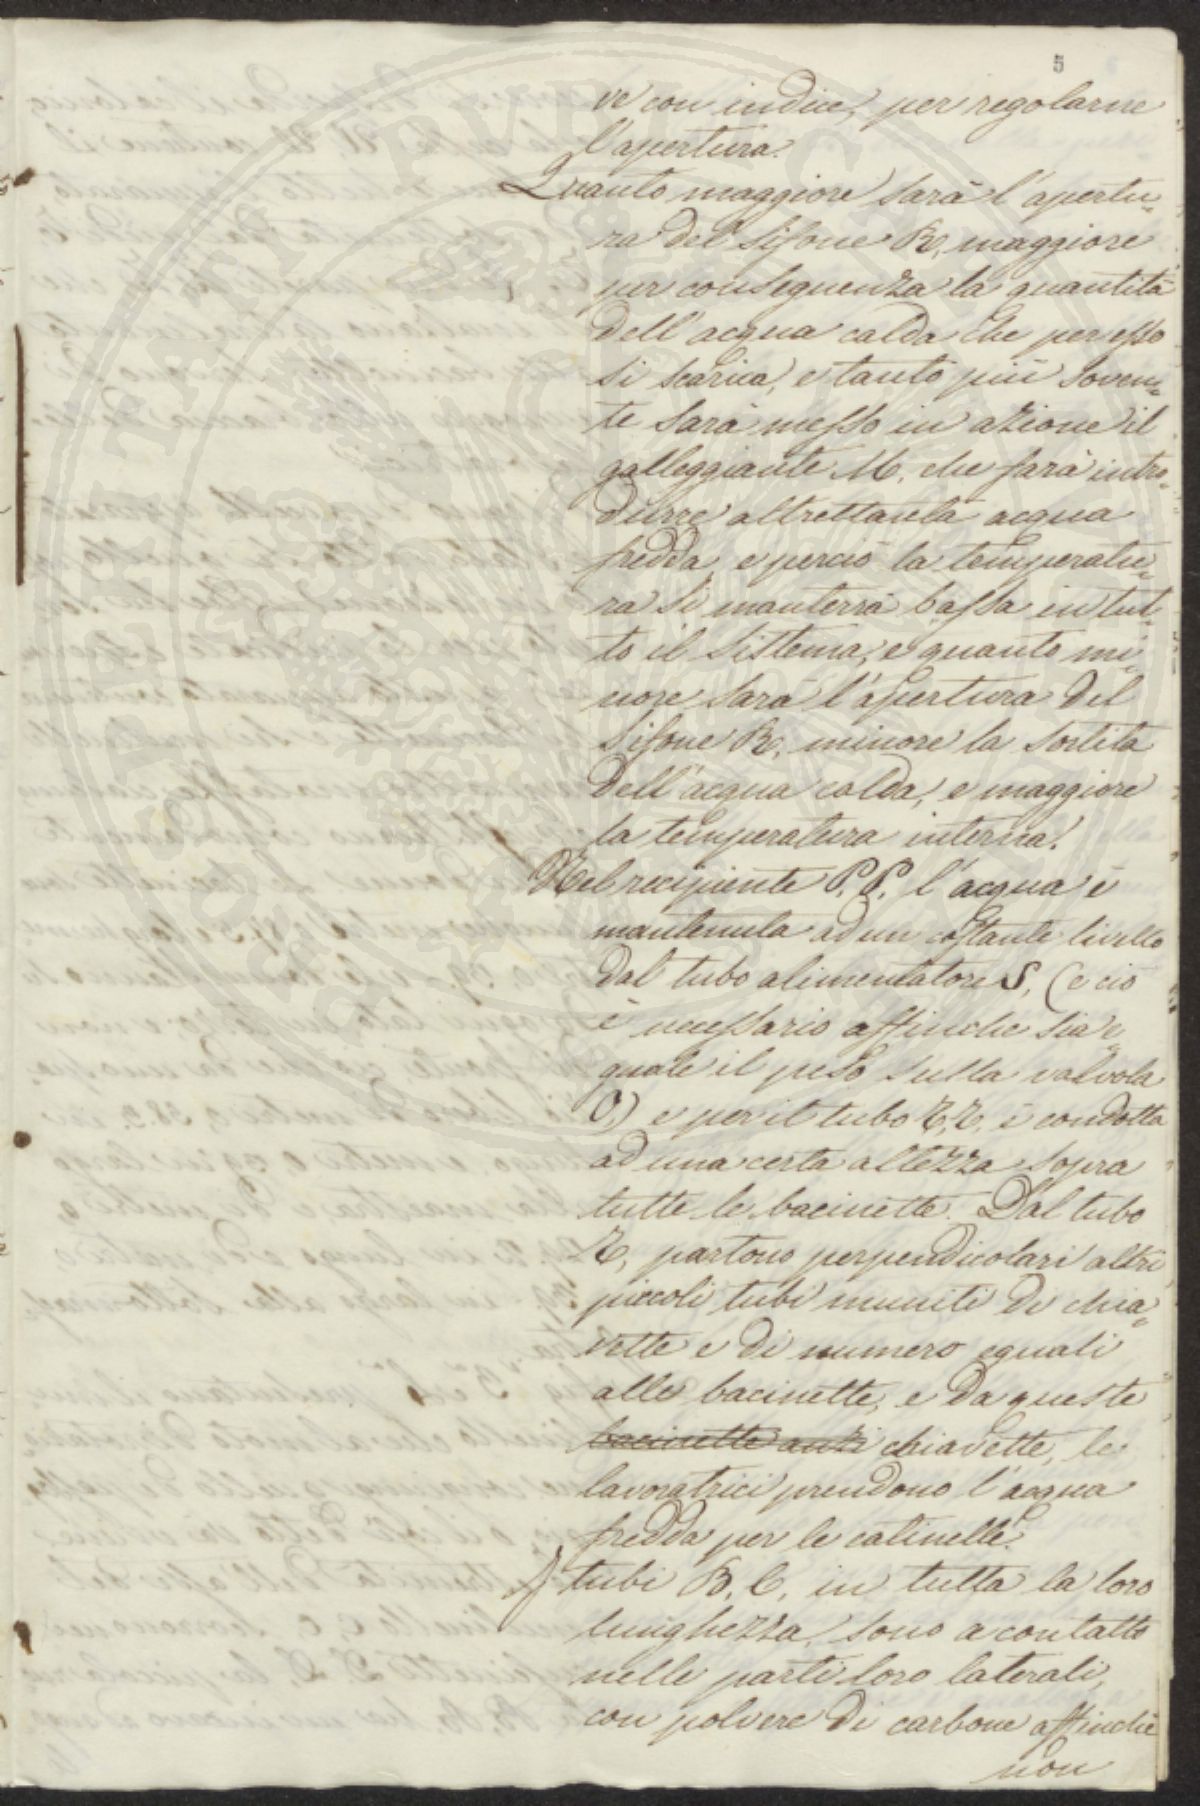 5
ve con indice, per regolarne
l'apertura.
Quanto maggiore sarà l'apertu=
ra del Sifone R, maggiore
per conseguenza la quantità
dell'acqua calda che per esso
si scarica, e tanto più soven=
te sarà messo in azione il
galleggiante M, che farà intro=
durre altrettanta acqua
fredda, e perciò la temperatu=
ra si manterrà bassa in tut=
to il Sistema, e quanto mi=
nore sarà l'apertura del
Sifone R, minore la sortita
dell'acqua calda, e maggiore
la temperatura interna.
Nel recipiente P. P. l'acqua è
mantenuta ad un costante livello
dal tubo alimentatore S, (e ciò
è necessario affinche sia e=
guale il peso sulla valvola
O,) e per il tubo Z, Z, è condotta
ad una certa altezza sopra
tutte le bacinette. Dal tubo
Z, partono perpendicolari altri
piccoli tubi muniti di chia=
vette e di numero eguali
alle bacinette, e da queste
bacinette anzi chiavette, le
lavoratrici prendono l'acqua
fredda per le catinelle.
I tubi B, C, in tutta la loro
lunghezza, sono a contatto
nelle parti loro laterali,
con polvere di carbone affinchè
non